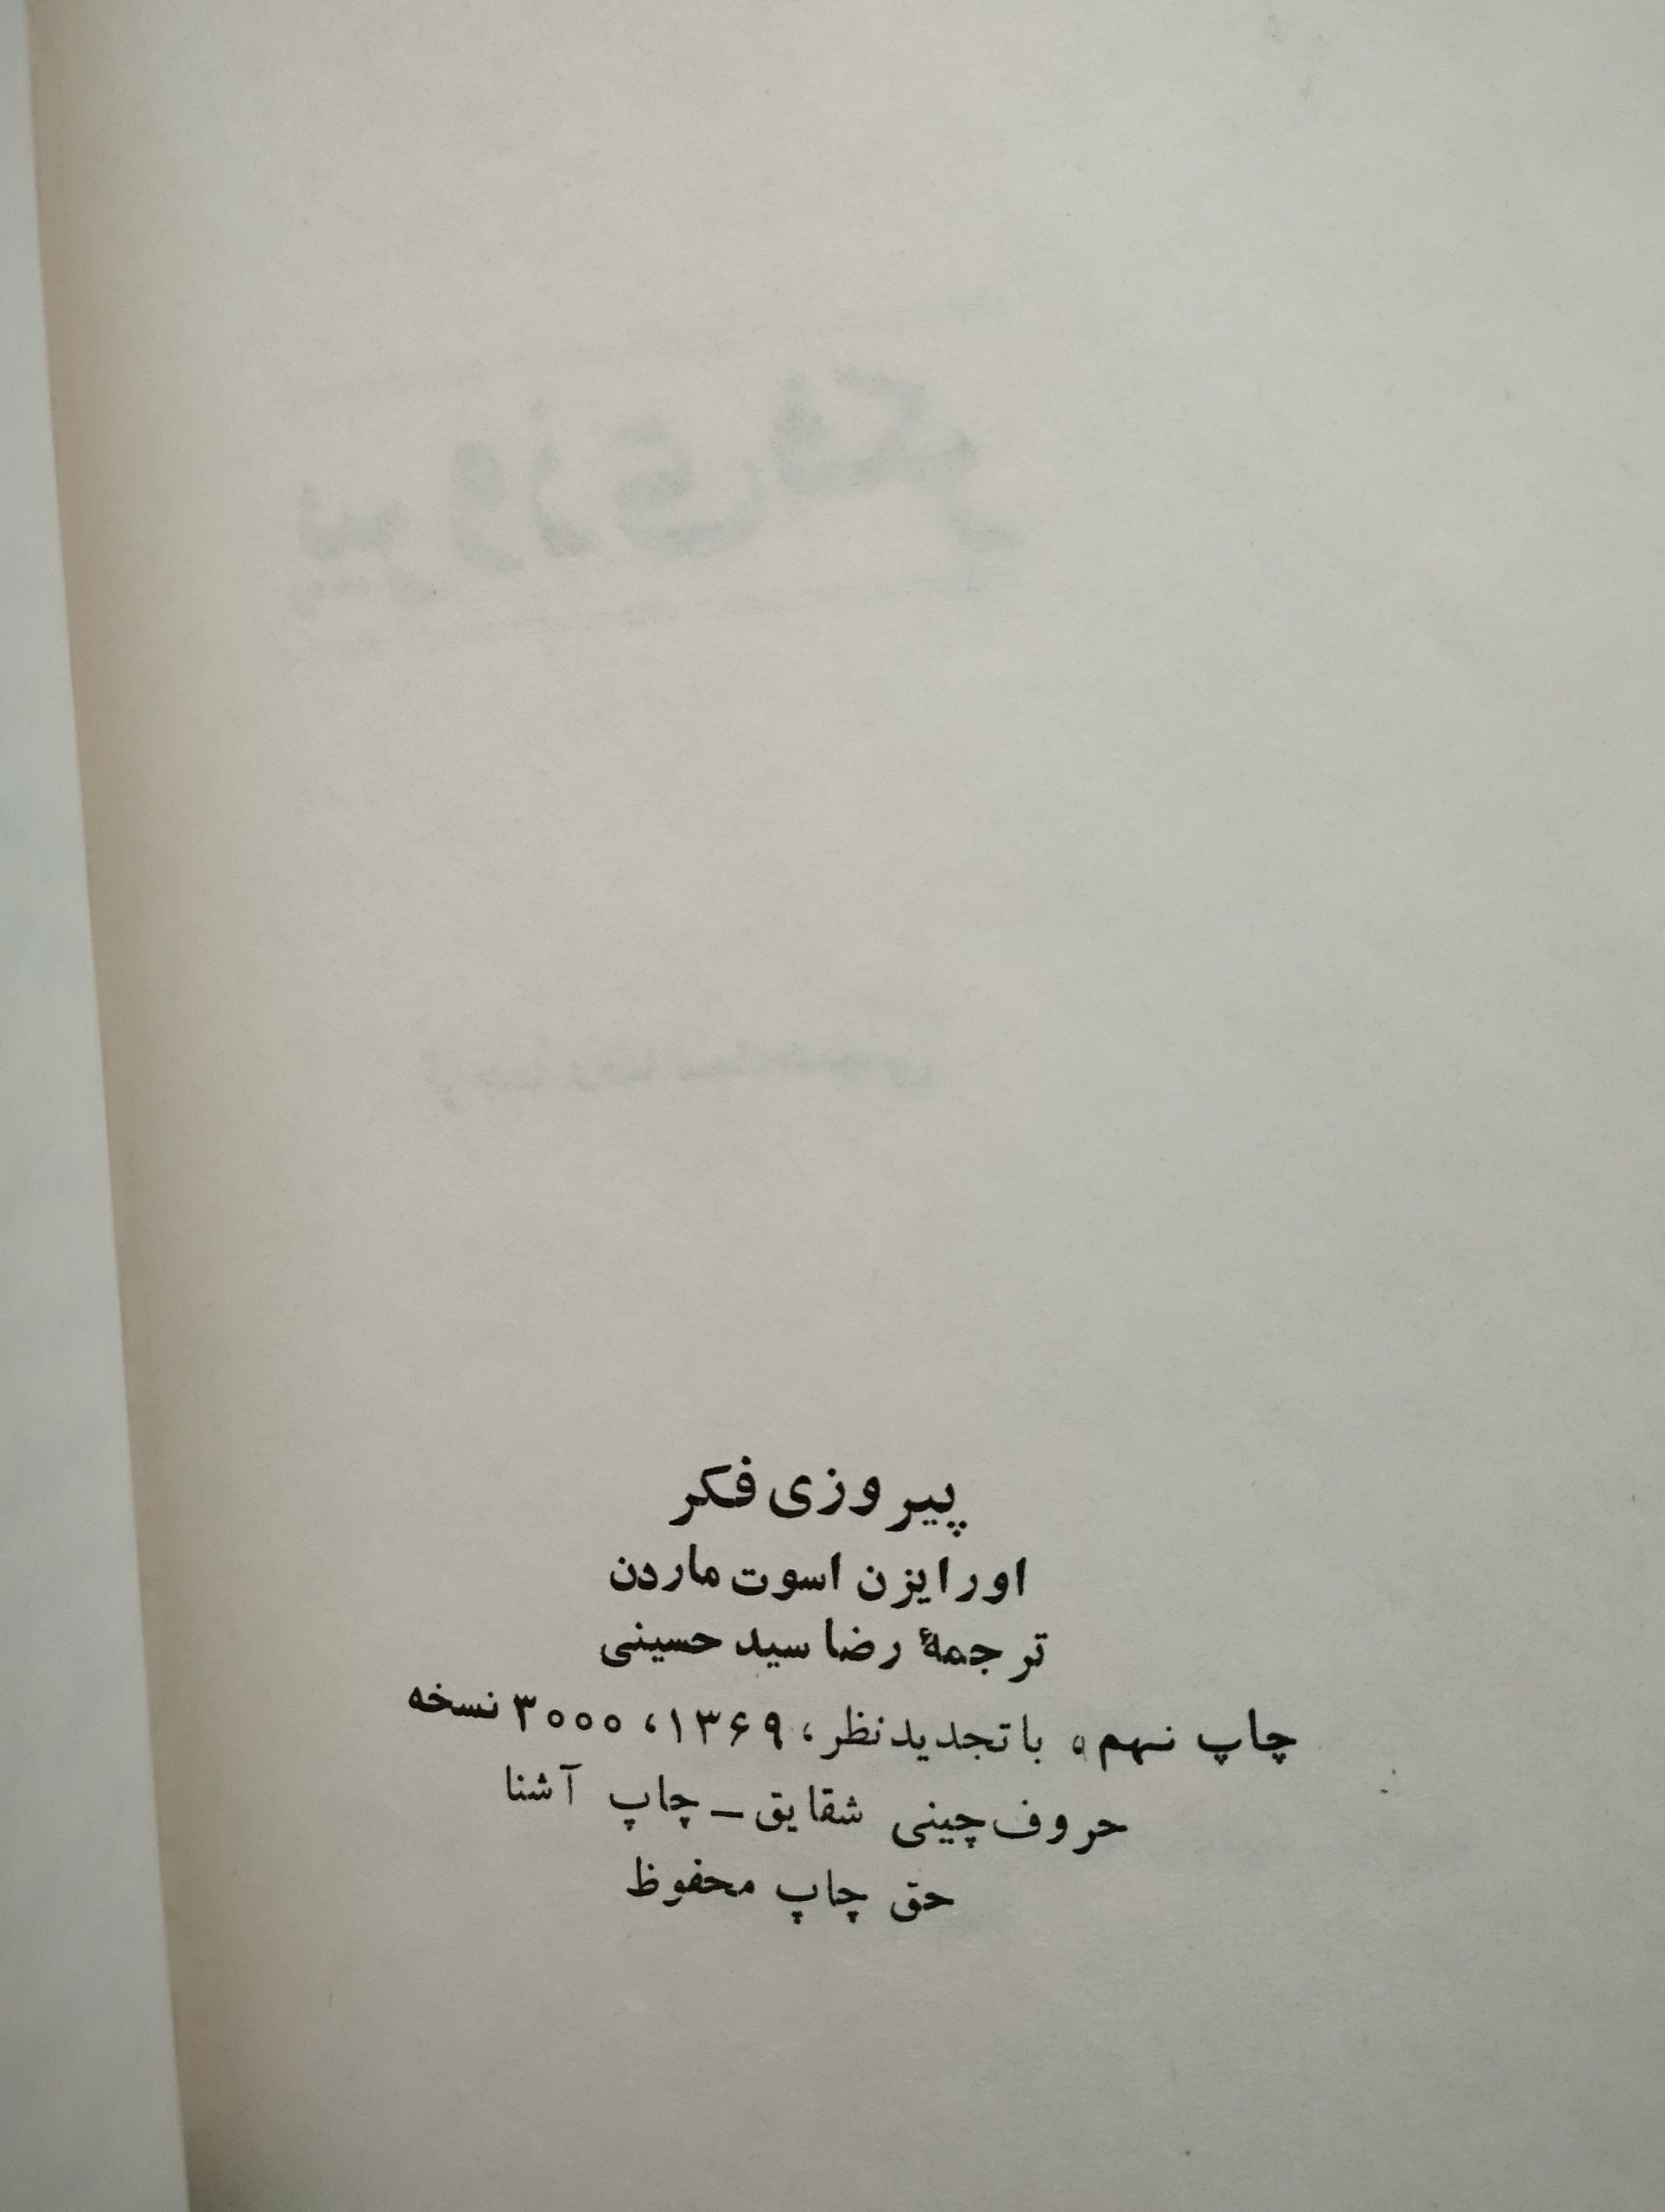 پیروزی فکر
اورایزن اسوت ماردن
ترجمهٔ رضا سید حسینی
چاپ نهم، با تجدیدنظر، ۱۳۶۹، ۳۰۰۰ نسخه
حروف‌چینی شقایق – چاپ آشنا
حق چاپ محفوظ